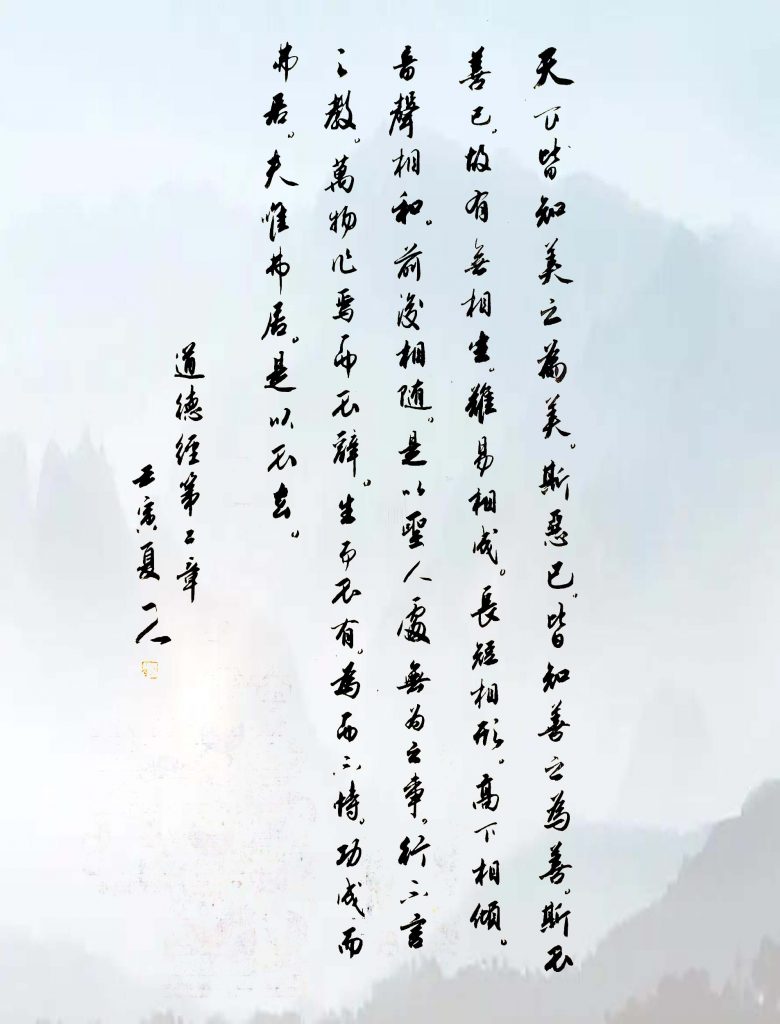 天下皆知美之為美。斯惡已。皆知善之為善。斯不
善已。故有無相生。難易相成。長短相形。高下相傾。
音聲相和。前後相随。是以聖人處無为之事。行不言
之教。萬物作焉而不辭。生而不有。為而不恃。功成而
弗居。夫唯弗居。是以不去。
道德經第二章
壬寅夏 一人